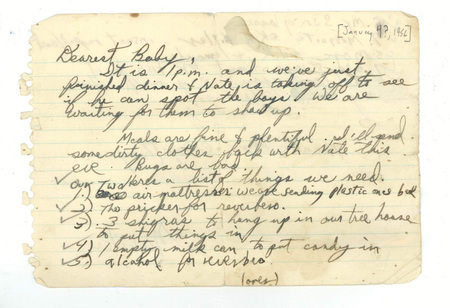 [January 4?, 1956]
Dearest Baby,
It is 1 p.m. and we've just
finished dinner & Nate is taking off to see
if he can spot the boys we are
waiting for them to show up.
Meals are fine & plentiful. I'll send
some dirty clothes of his with Nate this
eve. Bugs are bad.
Our Two Here's a list of things we need.
1.) air mattresses we are sending plastic ones back
2) The pitcher for
3. 3 shigras to hang up in our tree house
to put things in
4) 1 empty milk can to put candy in
5.) alcohol for
(over)